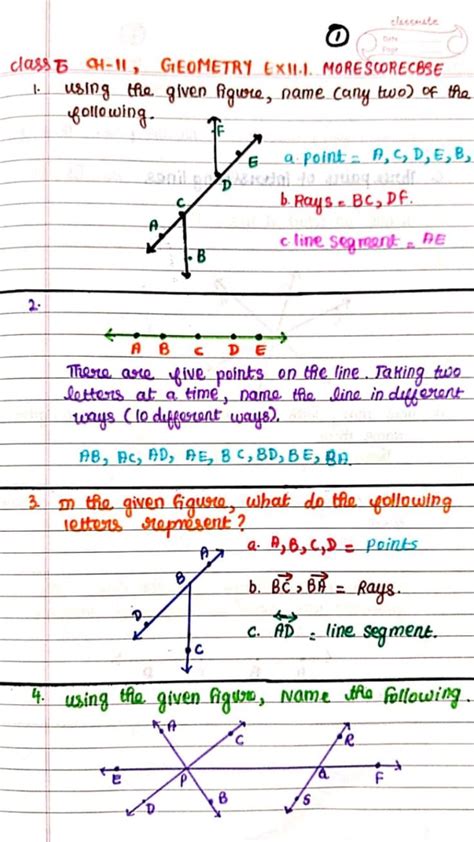 classmate
Date
Page
1
class 5 CH-11, GEOMETRY EX11.1. MORESCORECBSE
1. using the given figure, name (any two) of the following.
F
E
D
C
A
B
a. point = A, C, D, E, B,
b. Rays = BC, DF.
c line segment = AE
2.
A B C D E
There are five points on the line. Taking two
letters at a time, name the line in different
ways (10 different ways).
AB, AC, AD, AE, BC, BD, BE, BA
3. In the given figure, what do the following
letters represent?
A
B
D
C
a. A, B, C, D = points
b. BC, BA = Rays.
c. AD = line segment.
4. using the given figure, Name the following.
A
C
R
E
P
Q
F
D
B
S